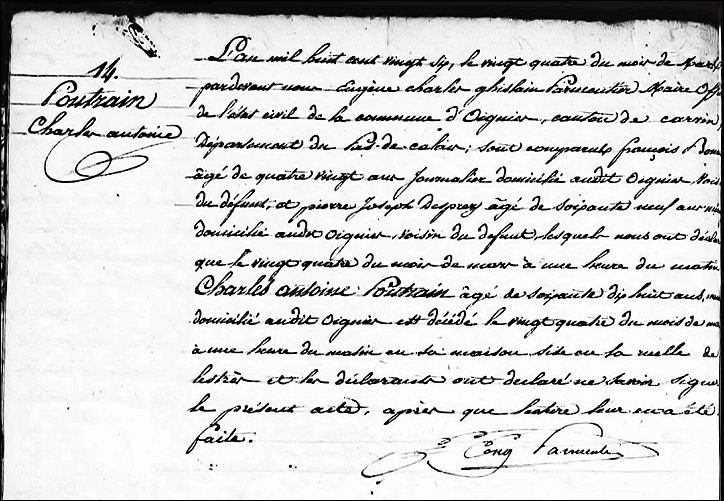 14.
Poutrain
Charles antoine
L'an mil huit cent vingt six, le vingt quatre du mois de Mars
pardevant nous Eugène charles ghislain Parmentier Maire Off
de l'état civil de la commune d'Oignies, canton de carvin
Département du Pas-de-calais; sont comparus françois Bonn
âgé de quatre vingt ans Journalier domicilié audit Oignies, vois
du défunt, et pierre Joseph Desprez âgé de soixante neuf ans
domicilié audit Oignies, voisin du defunt, lesquels nous ont décla
que le vingt quatre du mois de mars à une heure du matin
Charles antoine Poutrain âgé de soixante dix huit ans,
domicilié audit Oignies est décédé le vingt quatre du mois de m
à une heure du matin en sa maison sise en la ruelle de
et les déclarants ont declaré ne savoir signer
le présent acte, après que lecture leur en a été
faite.